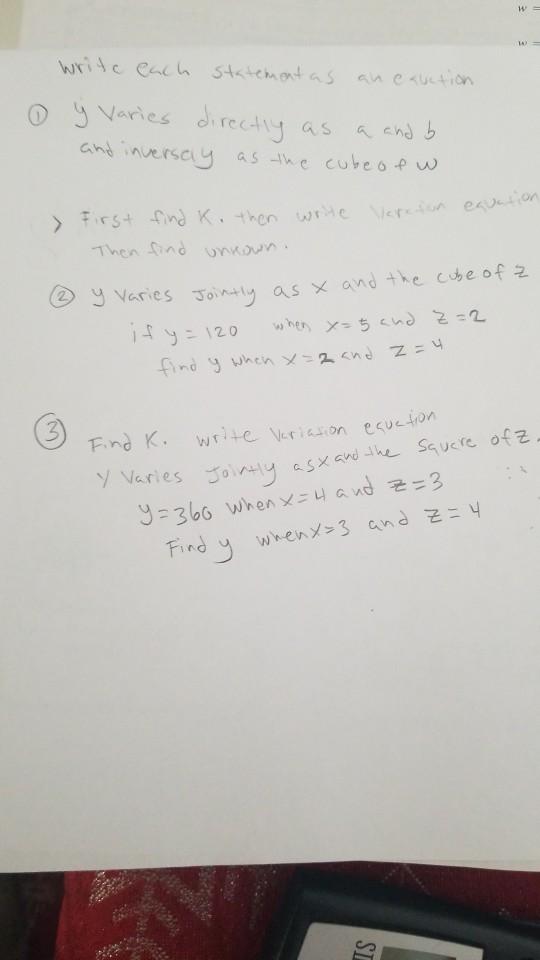 w =
w =
write each statement as an equation
① y varies directly as a and b
and inversely as the cube of w
> First find K. then write Variation equation
Then find unkown.
② y varies Jointly as x and the cube of z
if y = 120 when x = 5 and z = 2
find y when x = 2 and z = 4
③ Find K. write Variation equation
y varies Jointly as x and the square of z.
y = 360 when x = 4 and z = 3
Find y when x = 3 and z = 4